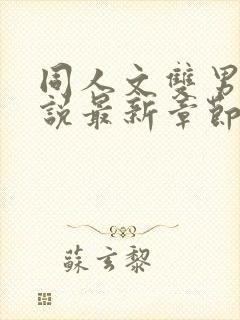 同人文雙男
說最新章節
蘇玄黎